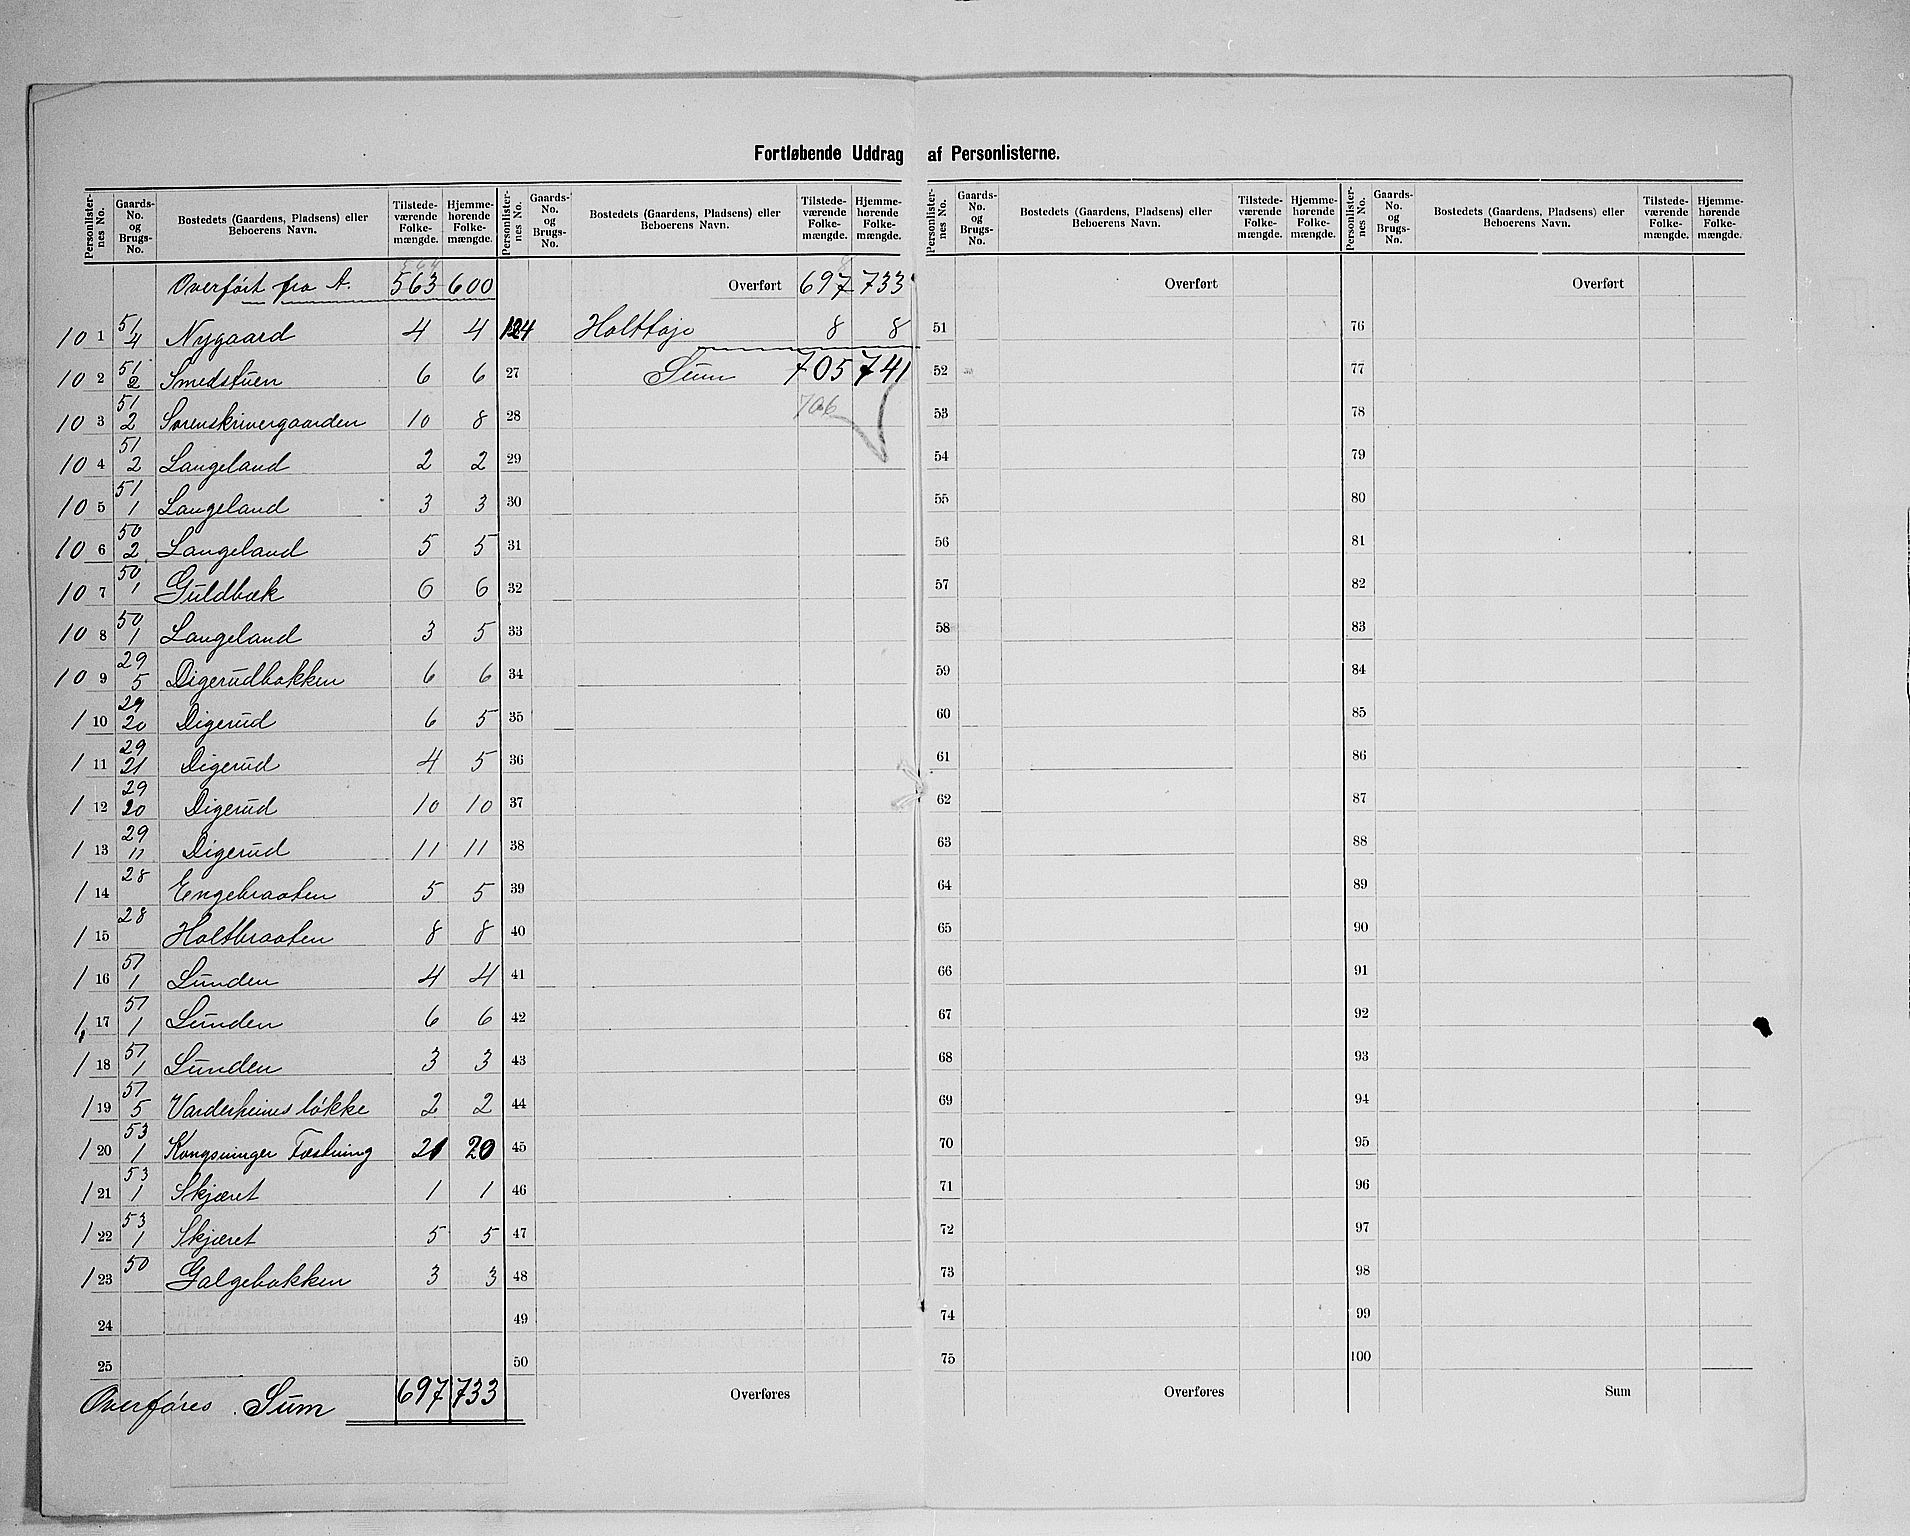 Fortløbende Uddrag af Personlisterne.
Personlister-nes No. Gaards-No. og Brugs-No. Bostedets (Gaardens, Pladsens) eller Beboerens Navn. Tilstede-værende Folke-mængde. Hjemme-hørende Folke-mængde.
Overført fra A. 563 600
101 51/4 Nygaard 4 4
102 51/2 Smedstuen 6 6
103 51/2 Sorenskrivergaarden 10 8
104 51/2 Langeland 2 2
105 51/1 Langeland 3 3
106 50/2 Langeland 5 5
107 50/1 Guldbæk 6 6
108 50/1 Langeland 3 5
109 29/5 Digerudbakken 6 6
110 29/20 Digerud 6 5
111 29/21 Digerud 4 5
112 29/20 Digerud 10 10
113 29/11 Digerud 11 11
114 28 Engebraaten 5 5
115 28 Holtbraaten 8 8
116 51/1 Lunden 4 4
117 51/1 Lunden 6 6
118 51/1 Lunden 3 3
119 51/5 Varderheims løkke 2 2
120 53/1 Kongsvinger Fæstning 21 20
121 53/1 Skjæret 1 1
122 53/1 Skjæret 5 5
123 50 Galgebakken 3 3
24
25
Overføres. Sum 697 733
Personlister-nes No. Gaards-No. og Brugs-No. Bostedets (Gaardens, Pladsens) eller Beboerens Navn. Tilstede-værende Folke-mængde. Hjemme-hørende Folke-mængde.
Overført 697 733
124 8 8
27 Sum 705 741
28 706
29
30
31
32
33
34
35
36
37
38
39
40
41
42
43
44
45
46
47
48
49
50
Overføres
Personlister-nes No. Gaards-No. og Brugs-No. Bostedets (Gaardens, Pladsens) eller Beboerens Navn. Tilstede-værende Folke-mængde. Hjemme-hørende Folke-mængde.
Overført
51
52
53
54
55
56
57
58
59
60
61
62
63
64
65
66
67
68
69
70
71
72
73
74
75
Overføres
Personlister-nes No. Gaards-No. og Brugs-No. Bostedets (Gaardens, Pladsens) eller Beboerens Navn. Tilstede-værende Folke-mængde. Hjemme-hørende Folke-mængde.
Overført
76
77
78
79
80
81
82
83
84
85
86
87
88
89
90
91
92
93
94
95
96
97
98
99
100
Sum